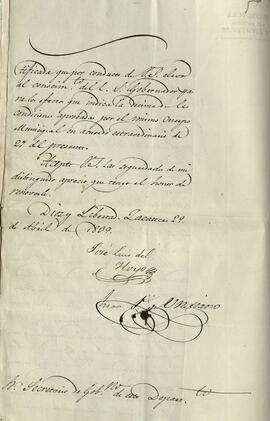 tificada que por conducto de V.S. elevo
al conocim.to del E. S. Gobernador pa
ra los efectos que indica la decima de las
condiciones aprobadas por el mismo Cuerpo
Municipal en acuerdo extraordinario de
27 del presente.
Acepte V.S. las seguridades de mi
distinguido aprecio que tengo el honor de
renovarle.
Dios y Libertad. Zacatecas 29
de Abril de 1839.
José Luis del
Hoyo
Juan
S. Secretario de Gob.no de este Depar.to